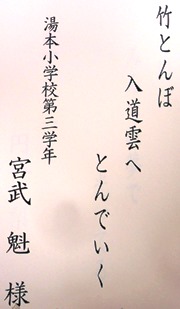 竹とんぼ
入道雲へ
とんでいく
湯本小学校第三学年
宮武 魁 様